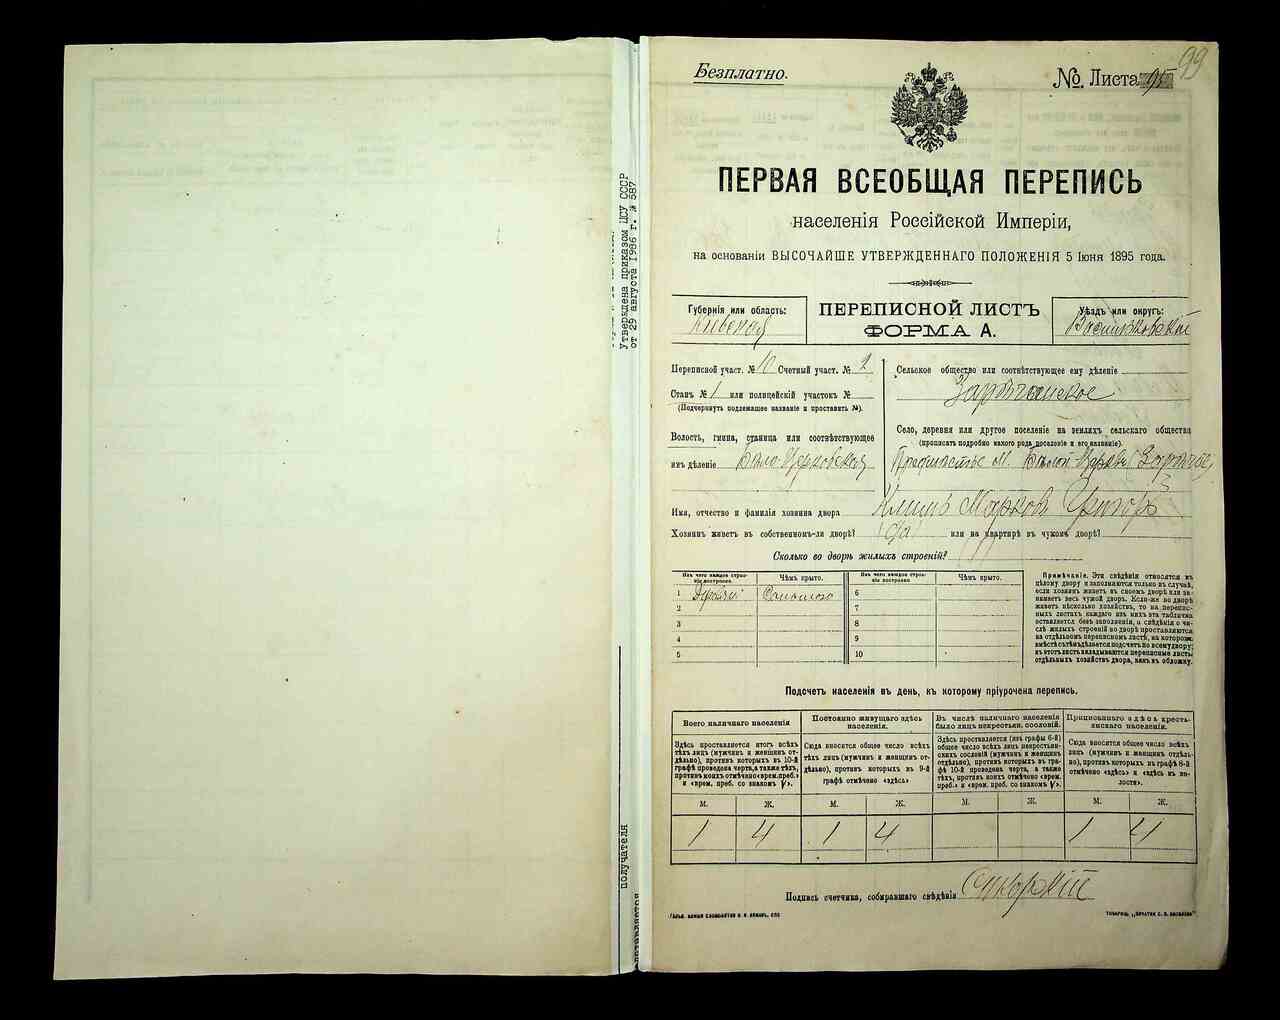 Утверждена приказом ЦСУ СССР
от 29 августа 1986 г. № 587
получателя
99
Безплатно.
№ Листа 95
ПЕРВАЯ ВСЕОБЩАЯ ПЕРЕПИСЬ
населенія Россійской Имперіи,
на основаніи ВЫСОЧАЙШЕ УТВЕРЖДЕННАГО ПОЛОЖЕНІЯ 5 Іюня 1895 года.
Губернія или область:
Кіевская
ПЕРЕПИСНОЙ ЛИСТЪ
ФОРМА А.
Уѣздъ или округъ:
Васильковскій
Переписной участ. № 10 Счетный участ. № 2
Станъ № 1 или полицейскій участокъ №
(Подчеркнуть подлежащее названіе и проставить №).
Волость, гмина, станица или соотвѣтствующее
имъ дѣленіе Бѣло-Церковская
Сельское общество или соотвѣтствующее ему дѣленіе
Зарѣчанское
Село, деревня или другое поселеніе на земляхъ сельскаго общества
(прописать подробно какого рода поселеніе и его названіе).
Предмѣстье м. Бѣлой-Церкви Зарѣчье
Имя, отчество и фамилія хозяина двора Климъ Марковъ
Хозяинъ живетъ въ собственномъ-ли дворѣ? (да) или на квартирѣ въ чужомъ дворѣ?
Сколько во дворѣ жилыхъ строеній?
Изъ чего каждое строеніе построено. Чѣмъ крыто. Изъ чего каждое строеніе построено. Чѣмъ крыто.
1 Дерев. Соломою 6
2 7
3 8
4 9
5 10
Примѣчаніе. Эти свѣдѣнія относятся къ
цѣлому двору и заполняются только въ случаѣ,
если хозяинъ живетъ въ своемъ дворѣ или занимаетъ
весь чужой дворъ. Если-же во дворѣ
живетъ нѣсколько хозяйствъ, то на переписныхъ
листахъ каждаго изъ нихъ эта табличка
оставляется безъ заполненія, а свѣдѣнія о числѣ
жилыхъ строеній во дворѣ проставляются
на отдѣльномъ переписномъ листѣ, на которомъ
вмѣстѣ съ тѣмъ дѣлается подсчетъ по всему двору;
въ этотъ листъ вкладываются переписные листы
отдѣльныхъ хозяйствъ двора, какъ въ обложку.
Подсчетъ населенія въ день, къ которому пріурочена перепись.
Всего наличнаго населенія
Постоянно живущаго здѣсь населенія.
Въ числѣ наличнаго населенія было лицъ некрестьян. сословій.
Приписаннаго здѣсь крестьянскаго населенія.
Здѣсь проставляется итогъ всѣхъ тѣхъ лицъ (мужчинъ и женщинъ отдѣльно), противъ которыхъ въ 10-й графѣ проведена черта, а также тѣхъ, противъ коихъ отмѣчено «врем. преб.» и «врем. преб. со знакомъ V».
Сюда вносится общее число всѣхъ тѣхъ лицъ (мужчинъ и женщинъ отдѣльно), противъ которыхъ въ 9-й графѣ отмѣчено «здѣсь»
Здѣсь проставляется (изъ графы 6-й) общее число всѣхъ лицъ некрестьянскихъ сословій (мужчинъ и женщинъ отдѣльно), противъ которыхъ въ графѣ 10-й проведена черта, а также тѣхъ, противъ коихъ отмѣчено «врем. преб.» и «врем. преб. со знакомъ V».
Сюда вносится общее число всѣхъ лицъ (мужчинъ и женщинъ отдѣльно), противъ которыхъ въ графѣ 8-й отмѣчено «здѣсь» и «здѣсь въ волости».
М. Ж. М. Ж. М. Ж. М. Ж.
1 4 1 4 1 4
Подпись счетчика, собиравшаго свѣдѣнія Сикорскій